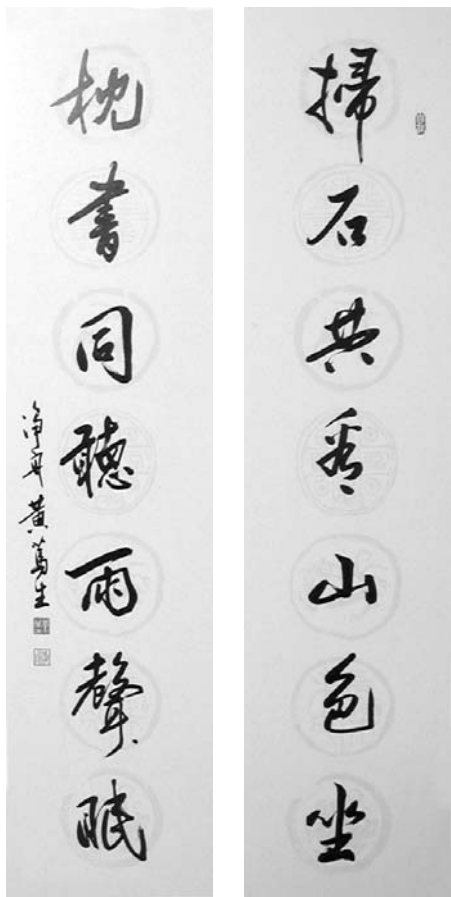 掃石共看山色坐
枕書同聽雨聲眠
净舟黄篤生